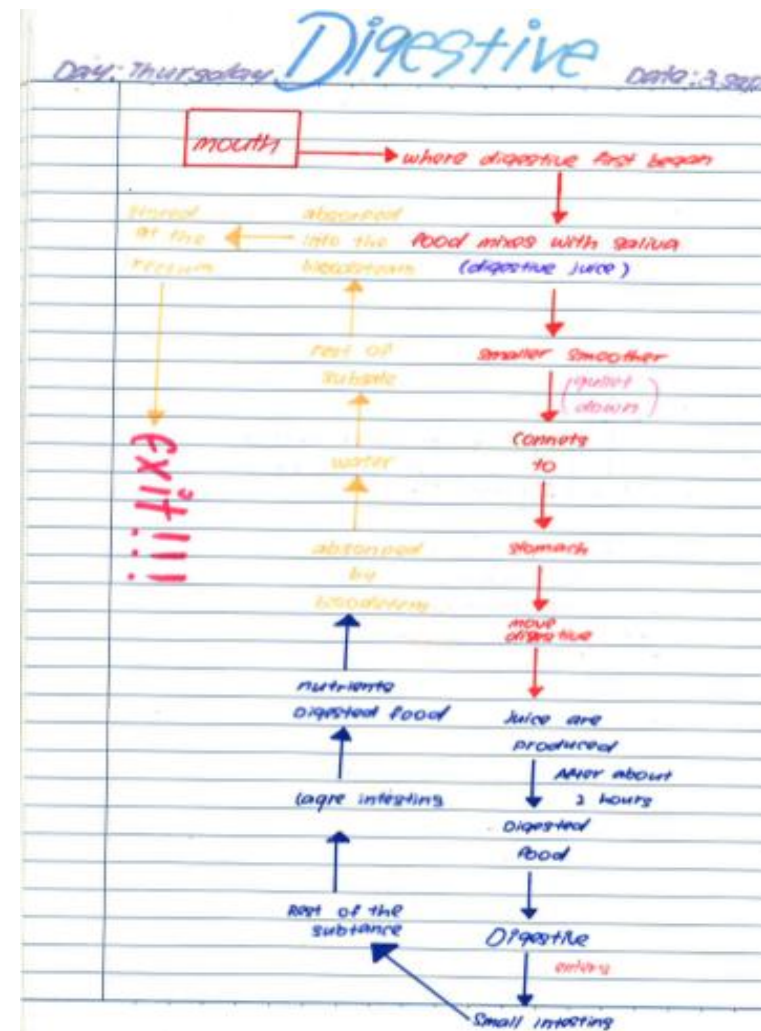 Digestive
Day: Thursday
Date: 3 sep
mouth
where digestive first began
food mixes with saliva
(digestive juice)
smaller smoother
(gullet
down)
Connets
to
stomach
move
digestive
Juice are
produced
After about
2 hours
Digested
food
Digestive
enters
small intesting
Rest of the
subtance
laqre intesting
nutriente
Digested food
absorped
by
water
rest of
absorped
into the
stored
at the
rectum
exit!!!